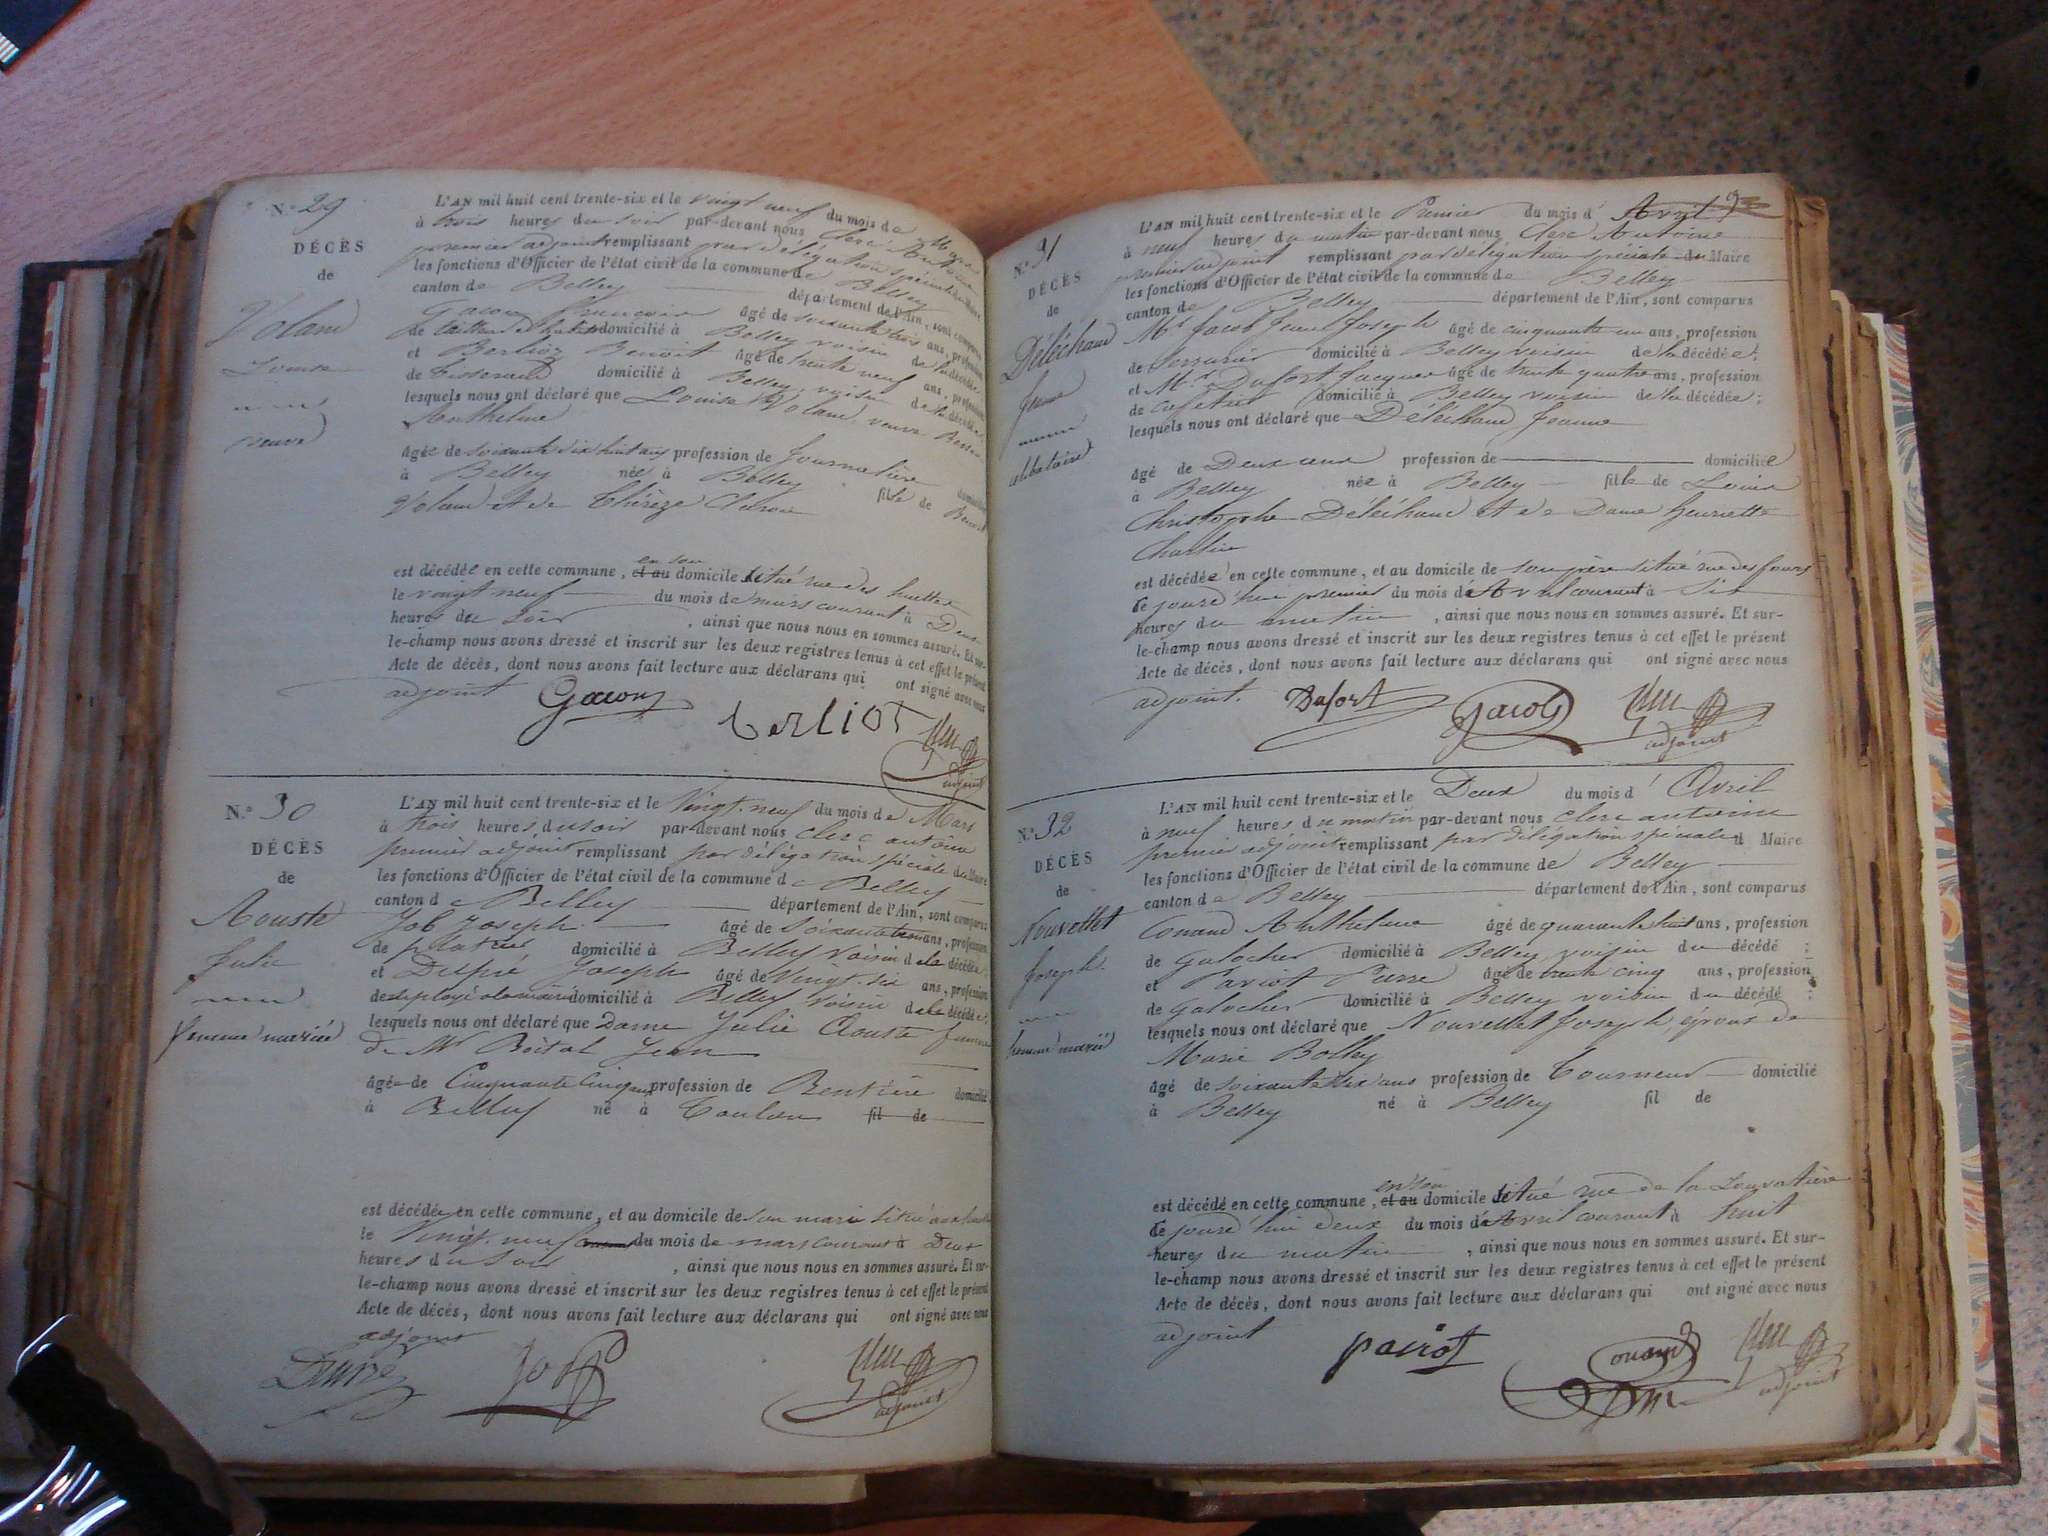 N.° 29
DÉCÈS
de
Voland
Louise
veuve
L'AN mil huit cent trente-six et le vingt neuf du mois de Mars
à trois heures du soir par-devant nous Clerc Antoine
premier adjoint remplissant par délégation spéciale du Maire
les fonctions d'Officier de l'état civil de la commune de Belley
canton de Belley département de l'Ain, sont comparus
Gacon François âgé de soixante trois ans, profession
de domicilié à Belley voisin de la décédée;
et Berlioz Benoit âgé de trente neuf ans, profession
de Tisserand domicilié à Belley, voisin de la décédée;
lesquels nous ont déclaré que Louise Voland, veuve
Anthelme
âgée de soixante dix huit ans profession de Journalière domiciliée
à Belley née à Belley fille de Benoit
Voland et de Thérèze
est décédée en cette commune, et au en son domicile situé rue des
le vingt neuf du mois de mars courant à Deux
heures du Soir, ainsi que nous nous en sommes assuré. Et sur-
le-champ nous avons dressé et inscrit sur les deux registres tenus à cet effet le présent
Acte de décès, dont nous avons fait lecture aux déclarans qui ont signé avec nous
adjoint Gacon
berlioz
adjoint
N.° 30
DÉCÈS
de
Aouste
Julie
femme mariée
L'AN mil huit cent trente-six et le Vingt-neuf du mois de Mars
à trois heures du soir par-devant nous clerc antoine
premier adjoint remplissant par délégation spéciale du Maire
les fonctions d'Officier de l'état civil de la commune de Belley
canton de Belley département de l'Ain, sont comparus
Job Joseph âgé de Soixante trois ans, profession
de platrier domicilié à Belley voisin de la décédée;
et Despré Joseph âgé de Vingt-six ans, profession
de domicilié à Belley Voisin de la décédée;
lesquels nous ont déclaré que Dame Julie Aouste femme
De Mr Boital Jean
âgée de Cinquante Cinq ans profession de Rentière domicilié
à Belley né à Toulon fil de
est décédée en cette commune, et au domicile de son mari situé
le Vingt-neuf du mois de mars courant à Deux
heures du Soir, ainsi que nous nous en sommes assuré. Et sur-
le-champ nous avons dressé et inscrit sur les deux registres tenus à cet effet le présent
Acte de décès, dont nous avons fait lecture aux déclarans qui ont signé avec nous
adjoint
Job
adjoint
N.° 31
DÉCÈS
de
Déléchaud
Jeanne
célibataire
L'AN mil huit cent trente-six et le Premier du mois d' Avril
à neuf heures du matin par-devant nous Clerc Antoine
premier adjoint remplissant par délégation spéciale du Maire
les fonctions d'Officier de l'état civil de la commune de Belley
canton de Belley département de l'Ain, sont comparus
Mr Jacob Jean Joseph âgé de cinquante un ans, profession
de Serrurier domicilié à Belley voisin de la décédée;
et Mr Dufort Jacques âgé de trente quatre ans, profession
de cafetier domicilié à Belley voisin de la décédée;
lesquels nous ont déclaré que Déléchaud Jeanne
âgé de Deux ans profession de domiciliée
à Belley née à Belley fille de Louis
Christophe Déléchaud et de Dame henriette
Charlin
est décédée en cette commune, et au domicile de son père situé rue des fours
le jourd'hui premier du mois d'Avril courant à six
heures du matin, ainsi que nous nous en sommes assuré. Et sur-
le-champ nous avons dressé et inscrit sur les deux registres tenus à cet effet le présent
Acte de décès, dont nous avons fait lecture aux déclarans qui ont signé avec nous
adjoint. Dufort Jacob
adjoint
N.° 32
DÉCÈS
de
Nouvellet
Joseph
homme marié
L'AN mil huit cent trente-six et le Deux du mois d' Avril
à neuf heures du matin par-devant nous clerc antoine
premier adjoint remplissant par délégation spéciale du Maire
les fonctions d'Officier de l'état civil de la commune de Belley
canton de Belley département de l'Ain, sont comparus
Conand Anthelme âgé de quarante huit ans, profession
de Galocher domicilié à Belley, voisin du décédé;
et Paviot Pierre âgé de trente cinq ans, profession
de Galocher domicilié à Belley voisin du décédé;
lesquels nous ont déclaré que Nouvellet Joseph, époux de
Marie Bolley
âgé de soixante six ans profession de Tourneur domicilié
à Belley né à Belley fil de
est décédé en cette commune, et au en son domicile situé rue de la Louvatière
le jourd'hui deux du mois d'Avril courant à huit
heures du matin, ainsi que nous nous en sommes assuré. Et sur-
le-champ nous avons dressé et inscrit sur les deux registres tenus à cet effet le présent
Acte de décès, dont nous avons fait lecture aux déclarans qui ont signé avec nous
adjoint paviot Conand
adjoint